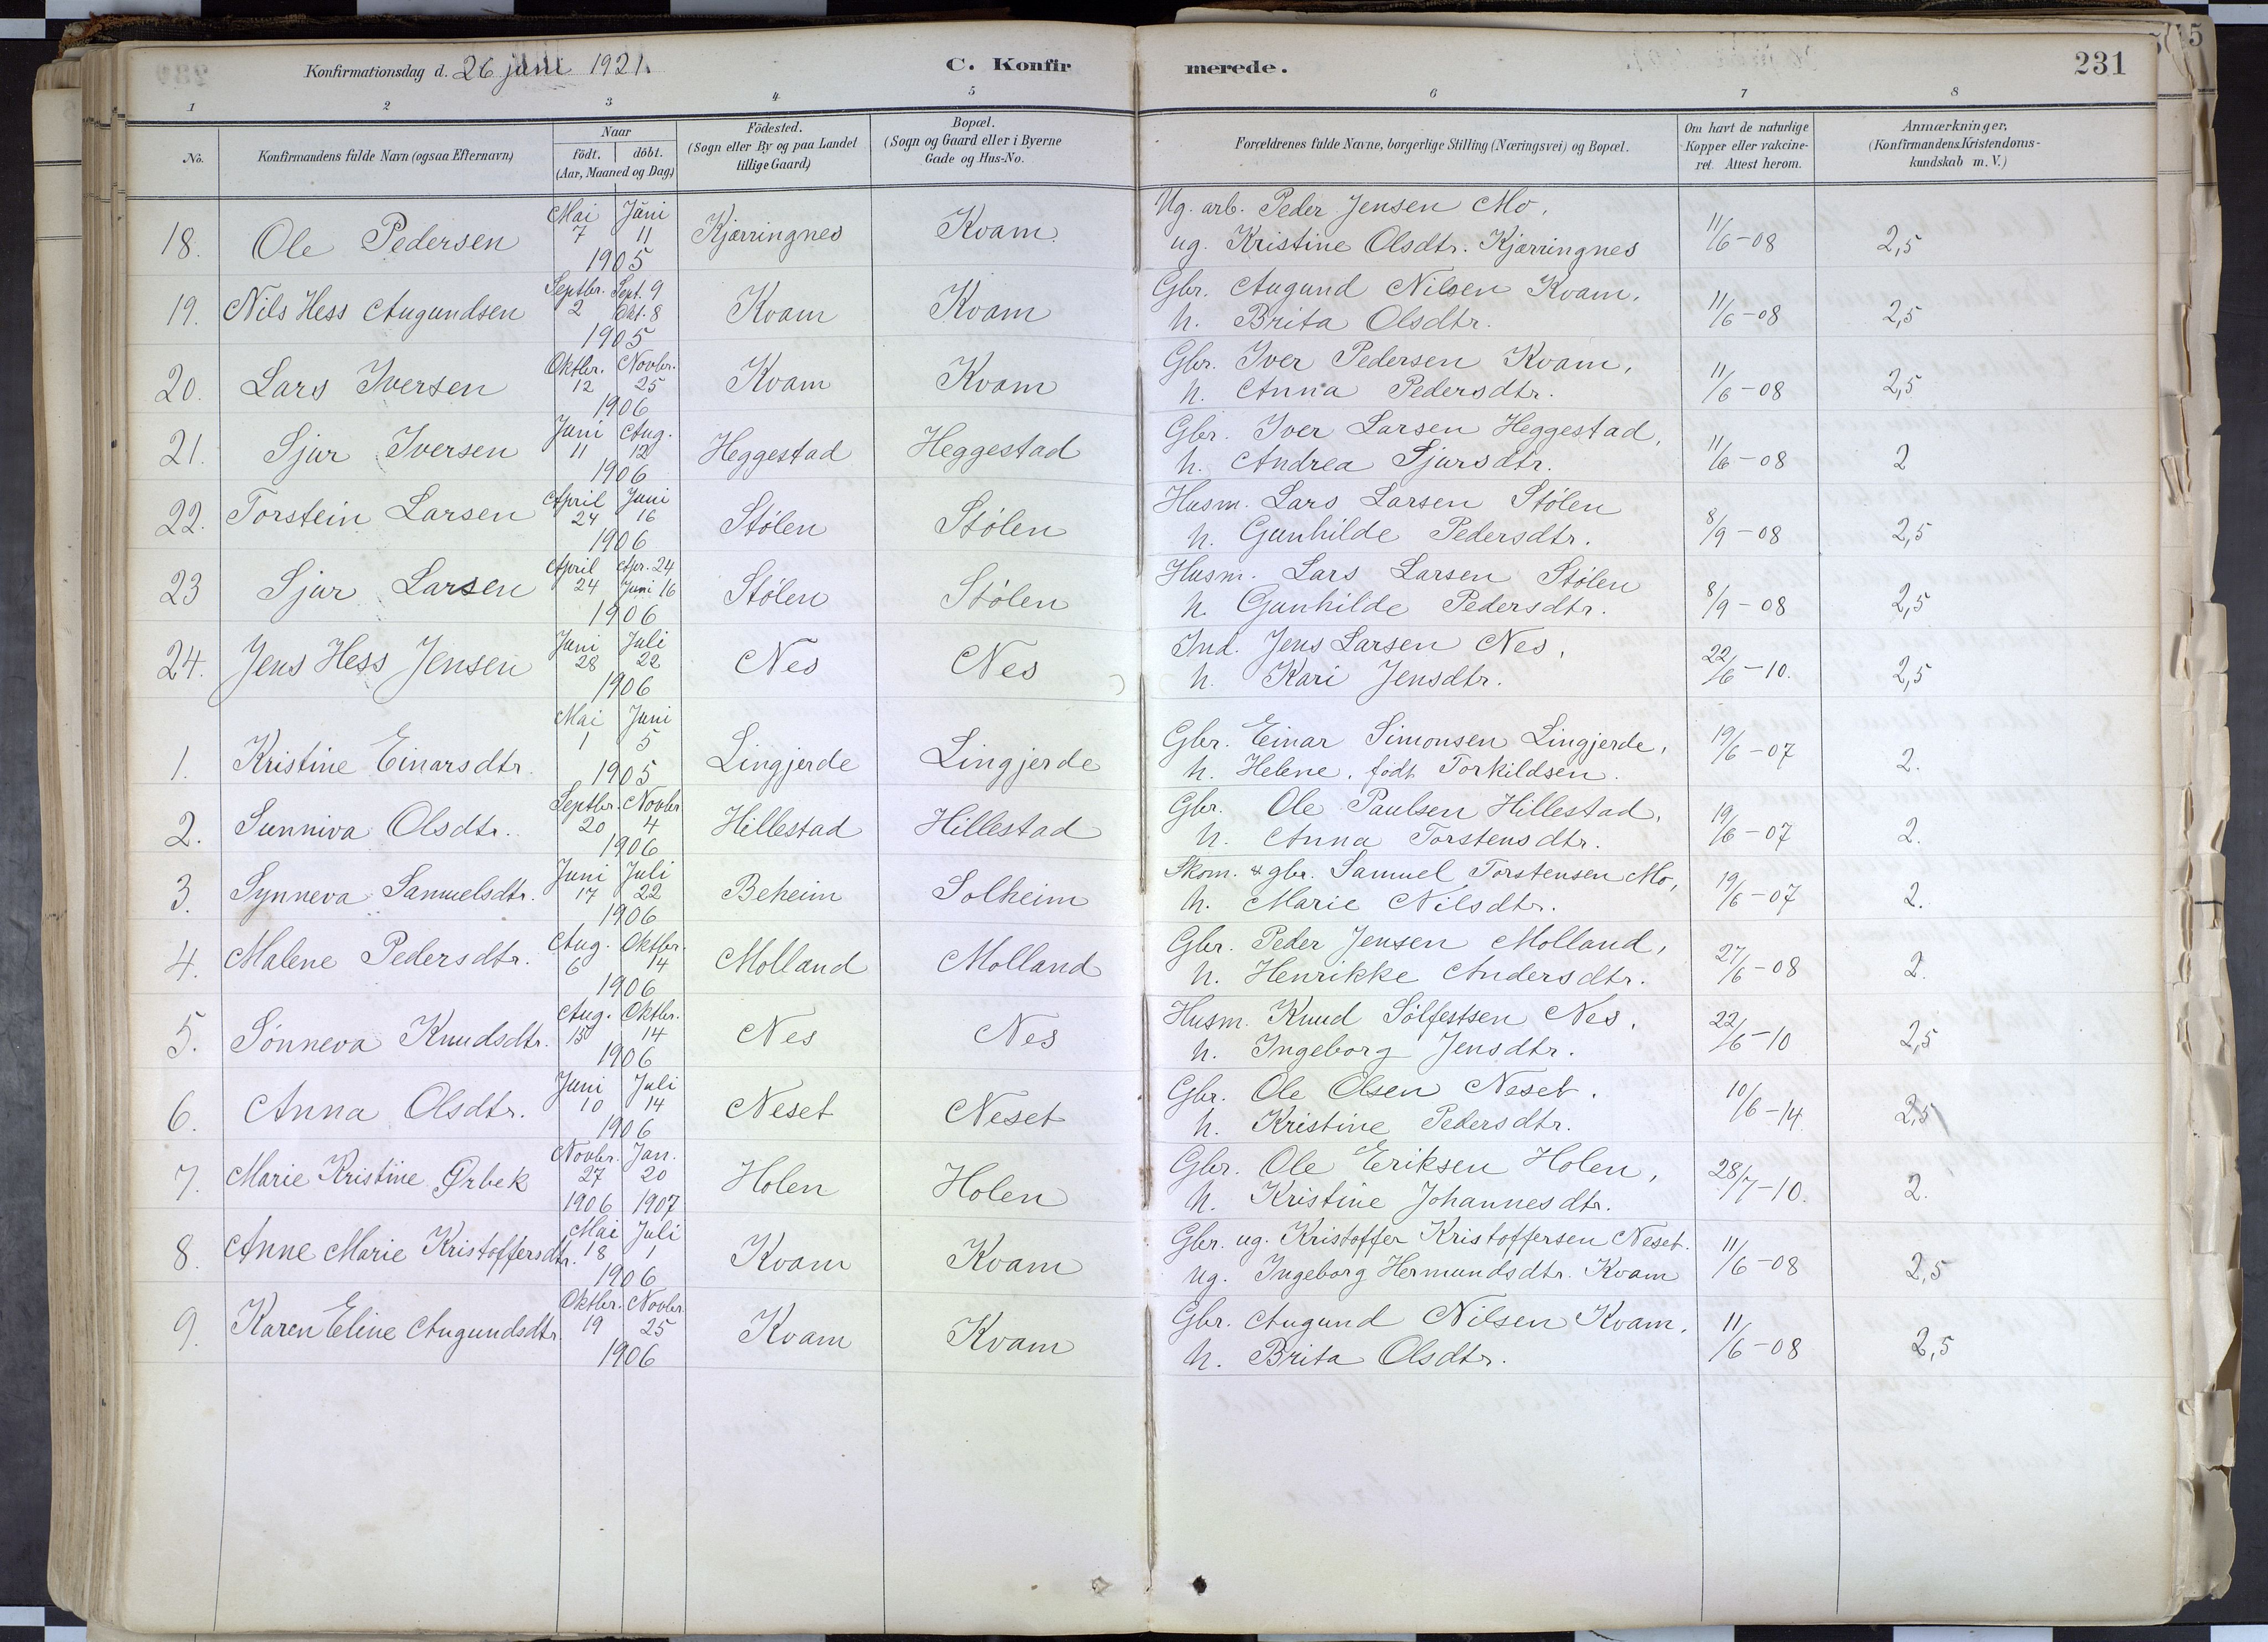 Konfirmationsdag d. 26 juni 1921.
C. Konfir merede.
231
1 2 3 4 5 6 7 8
No. Konfirmandens fulde Navn (ogsaa Efternavn) Naar födt. döbt. (Aar, Maaned og Dag.) Födested. (Sogn eller By og paa Landet tillige Gaard) Bopæl. (Sogn og Gaard eller i Byerne Gade og Hus-No. Forældrenes fulde Navne, borgerlige Stilling (Næringsvei) og Bopæl. Om havt de naturlige Kopper eller vakcineret. Attest herom. Anmærkninger, (Konfirmandens Kristendomskundskab m. V.)
18. Ole Pedersen Mai 7 Juni 11 1905 Kjærringnes Kvam Ug. arb. Peder Jensen Mo, 11/6-08 2,5
ug. Kristine Olsdtr. Kjærringnes
19. Nils Hess Augundsen Septbr. 2 Sept. 9 Okt. 8 1905 Kvam Kvam Gbr. Augund Nilsen Kvam, 11/6-08 2,5
h. Brita Olsdtr.
20. Lars Iversen Oktbr. 12 Novbr. 25 1906 Kvam Kvam Gbr. Iver Pedersen Kvam, 11/6-08 2,5
h. Anna Pedersdtr.
21. Sjur Iversen Juni 11 Aug. 12 1906 Heggestad Heggestad Gbr. Iver Larsen Heggestad, 11/6-08 2
h. Andrea Sjursdtr.
22. Torstein Larsen April 24 Juni 16 1906 Stølen Stølen Husm. Lars Larsen Stølen 8/9-08 2,5
h. Gunhilde Pedersdtr.
23 Sjur Larsen April 24 Apr. 24 Juni 16 1906 Stølen Stølen Husm. Lars Larsen Stølen 8/9-08 2,5
h. Gunhilde Pedersdtr.
24. Jens Hess Jensen Juni 28 Juli 22 1906 Nes Nes Ind. Jens Larsen Nes, 22/6-10. 2,5
h. Kari Jensdtr.
1. Kristine Einarsdtr. Mai 1 Juni 5 1905 Lingjerde Lingjerde Gbr. Einar Simonsen Lingjerde, 19/6-07 2.
h. Helene, født Torkildsen.
2. Sunniva Olsdtr. Septbr. 20 Novbr 4 1906 Hillestad Hillestad Gbr. Ole Paulsen Hillestad, 19/6-07 2.
h. Anna Torstensdtr.
3. Synneva Samuelsdtr. Juni 17 Juli 22 1906 Beheim Solheim Skom. & gbr. Samuel Torstensen Mo, 19/6-07 2.
h. Marie Nilsdtr.
4. Malene Pedersdtr. Aug. 6 Oktbr. 14 1906 Molland Molland Gbr. Peder Jensen Molland, 27/6-08 2.
h. Henrikke Andersdtr.
5. Sønneva Knudsdtr. Aug. Oktbr. 14 1906 Nes Nes Husm. Knud Sølfestsen Nes, 22/6-10 2,5
h. Ingeborg Jensdtr.
6. Anna Olsdtr. Juni 10 Juli 14 1906 Neset Neset Gbr. Ole Olsen Neset. 10/6-14 2,5
h. Kristine Pedersdtr.
7. Marie Kristine Ørbek Novbr. 27 1906 Jan. 20 1907 Holen Holen Gbr. Ole Eriksen Holen, 28/7-10. 2.
h. Kristine Johannesdtr.
8. Anne Marie Kristoffersdtr. Mai 18 Juli 1 1906 Kvam Kvam Gbr. ug. Kristoffer Kristoffersen Neset. 11/6-08 2,5
ug. Ingeborg Hermundsdtr. Kvam
9. Karen Eline Augundsdtr. Oktbr. 19 Novbr. 25 1906 Kvam Kvam Gbr. Augund Nilsen Kvam, 11/6-08 2,5
h. Brita Olsdtr.